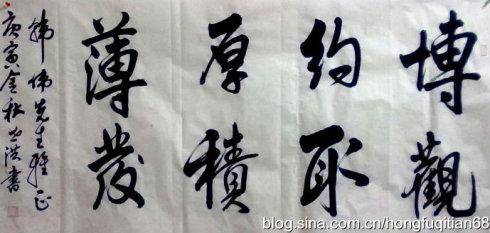 博觀
約取
厚積
薄發
韓偉先生雅正
庚寅金秋如洪書
blog.sina.com.cn/hongfuqitian68